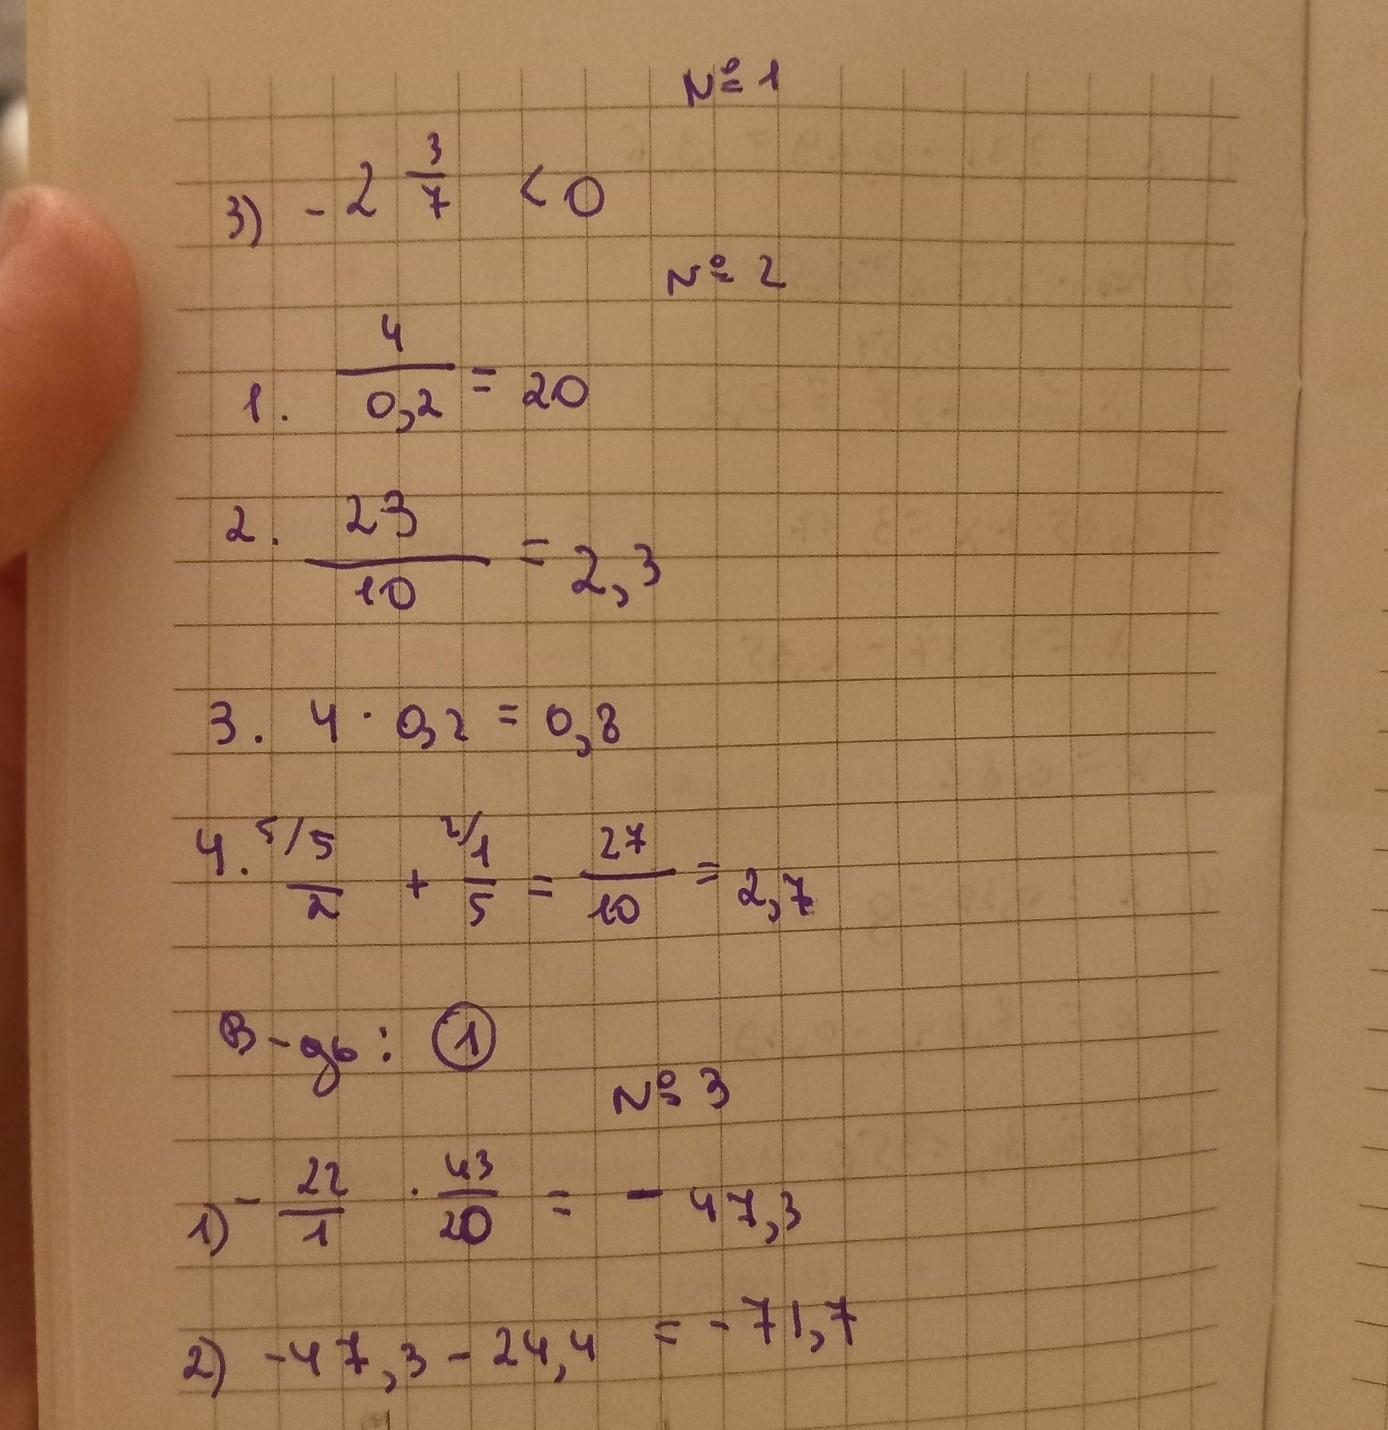 № 1
3) - 2 3/7 < 0
№ 2
1. 4/0,2 = 20
2. 23/10 = 2,3
3. 4 · 0,2 = 0,8
4. 5/ 5/2 + 2/ 1/5 = 27/10 = 2,7
В-дь: 1
№ 3
1) - 22/1 · 43/20 = - 47,3
2) -47,3 - 24,4 = - 71,7